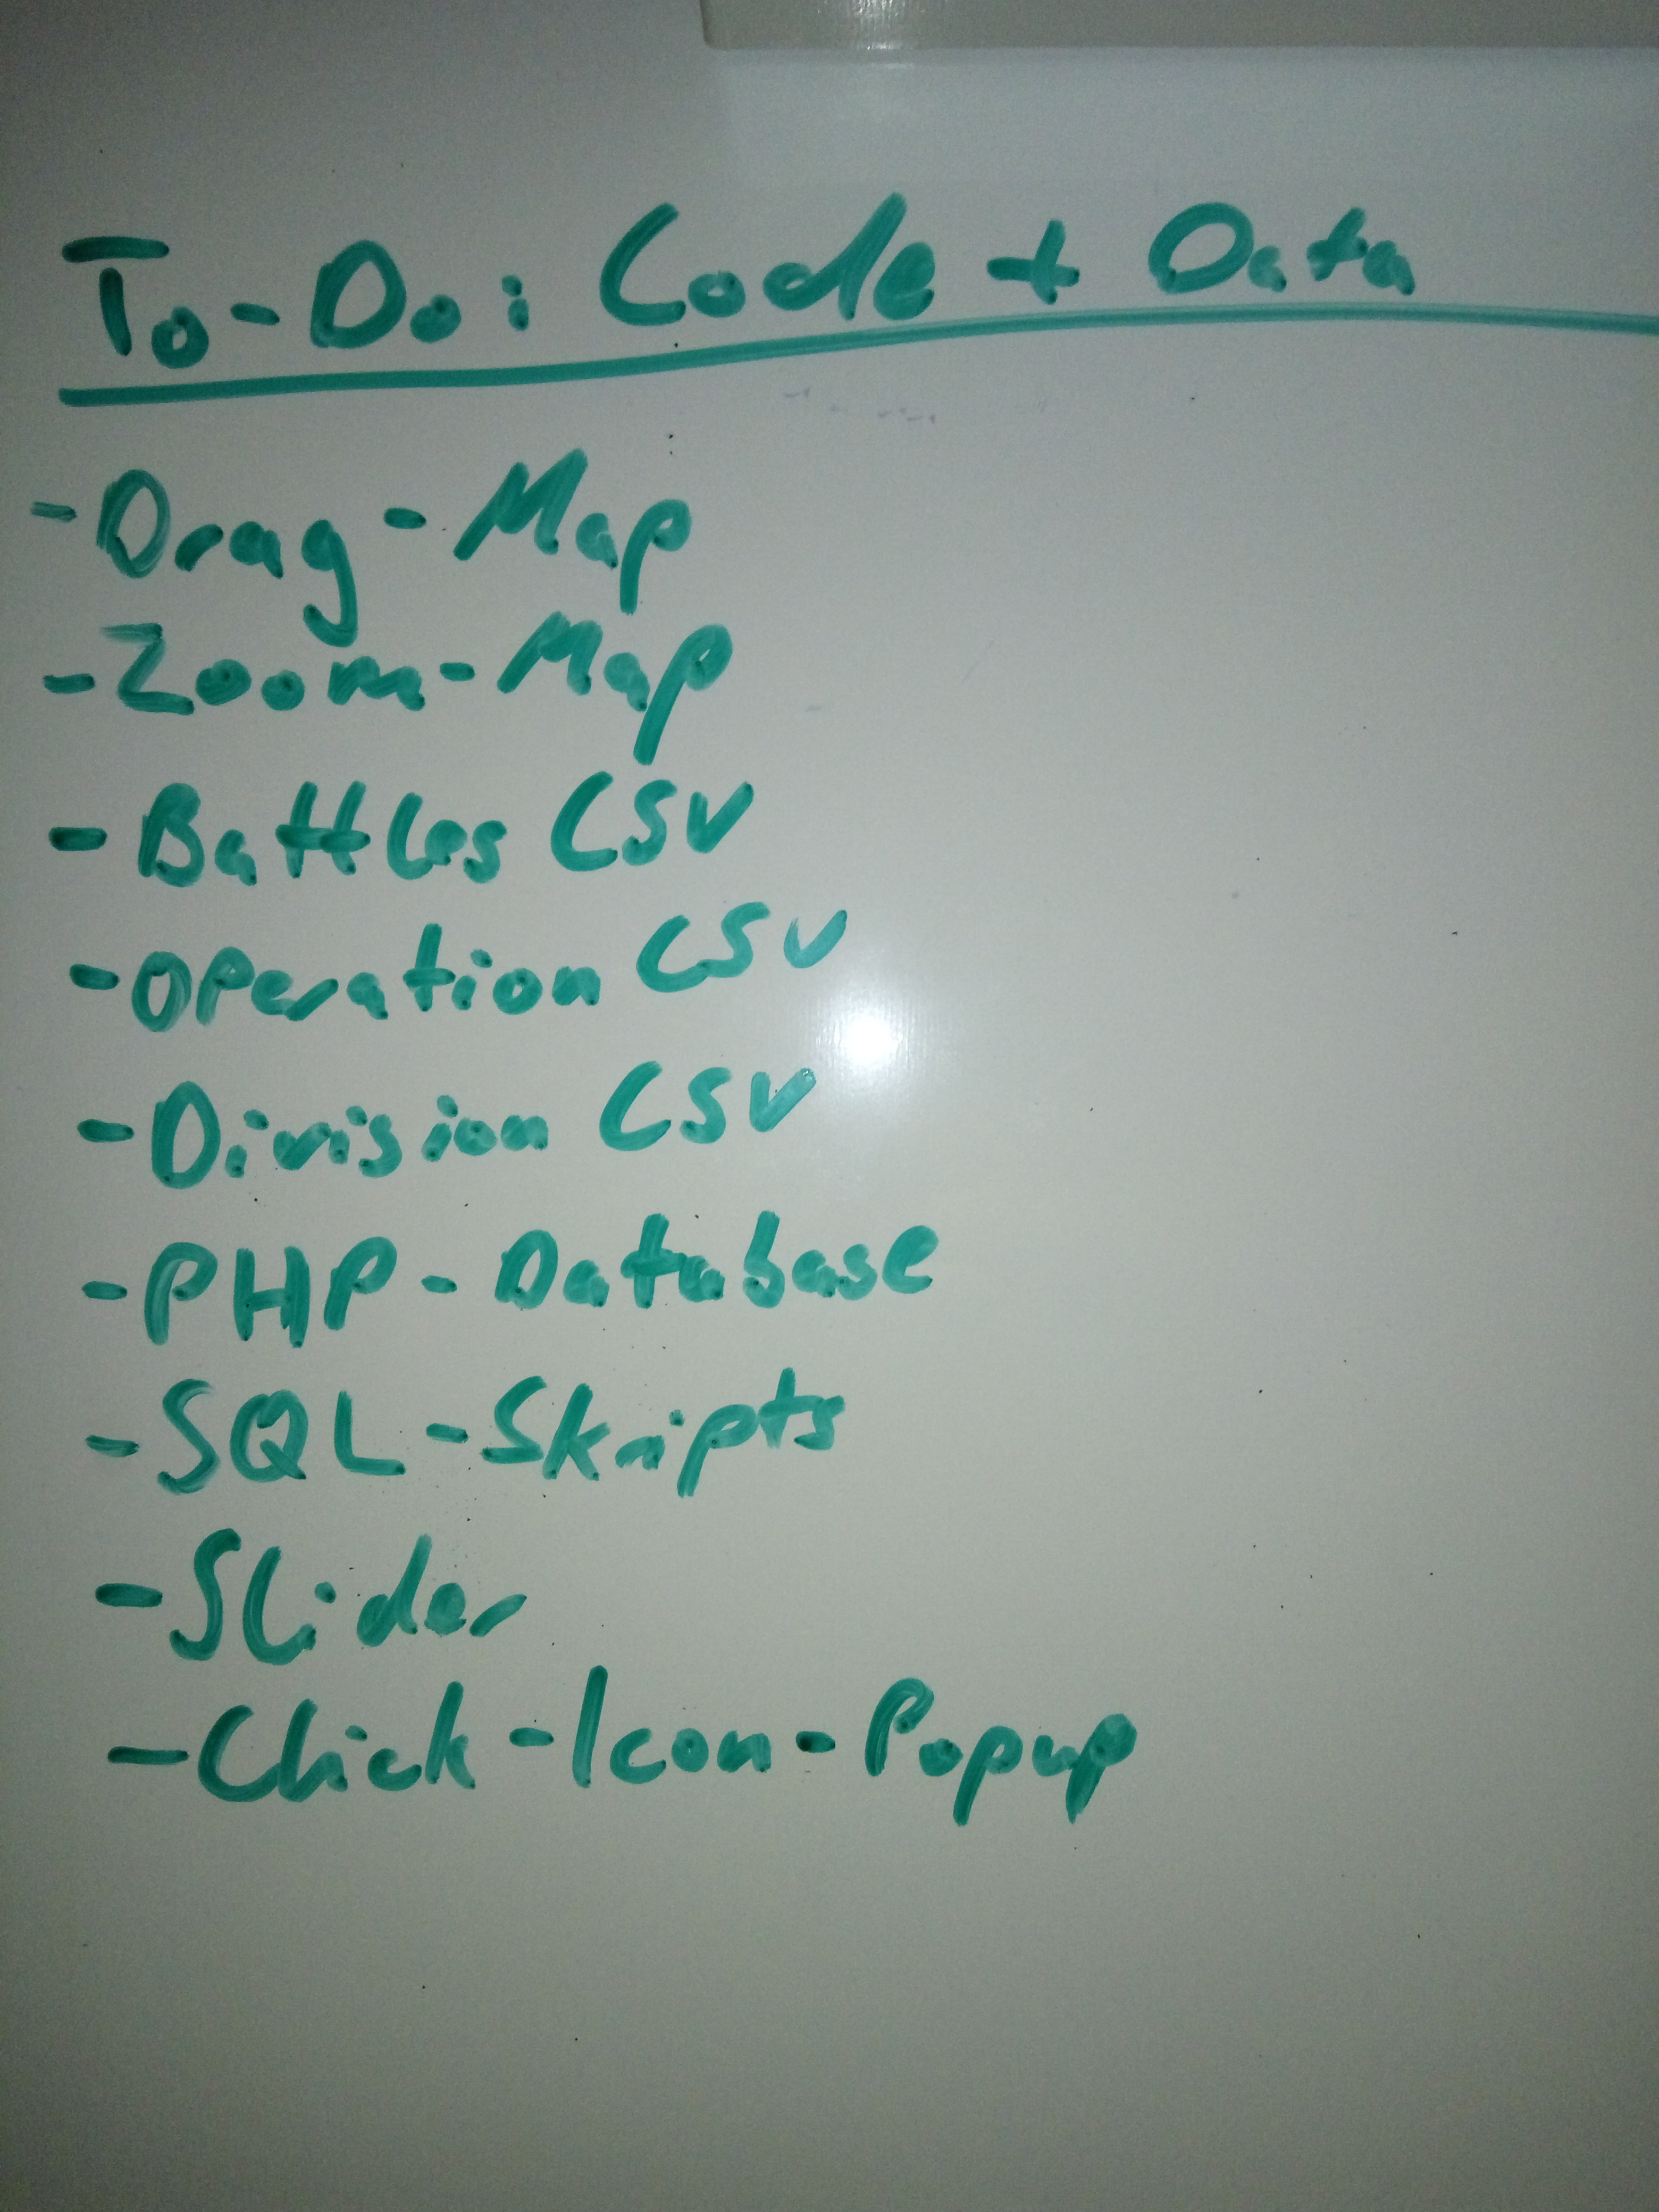 To-Do: Code + Data
- Drag-Map
- Zoom-Map
- Battles CSV
- Operation CSV
- Division CSV
- PHP-Database
- SQL-Skripts
- Slider
- Click-Icon-Popup